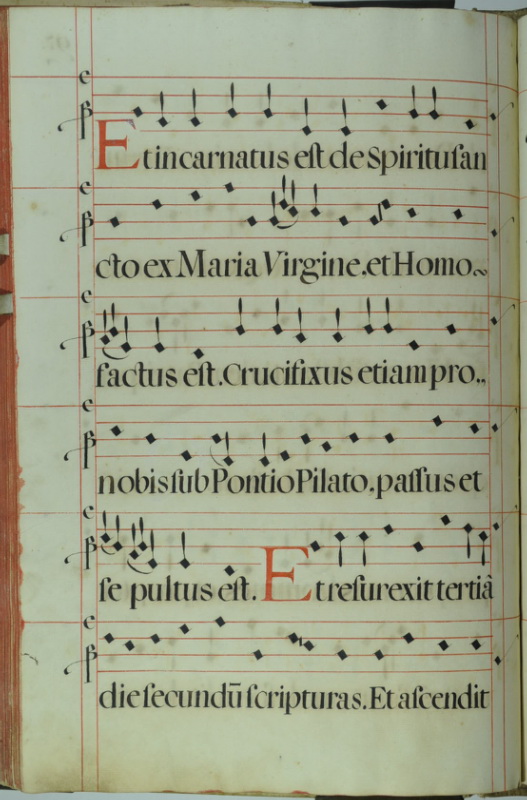 Et incarnatus eſt de Spiritu ſan
cto ex Maria Virgine. et Homo
factus eſt. Crucifixus etiam pro
nobis ſub Pontio Pilato. paſſus et
ſe pultus eſt. Et reſurexit tertiã
die ſecundū ſcripturas. Et aſcendit